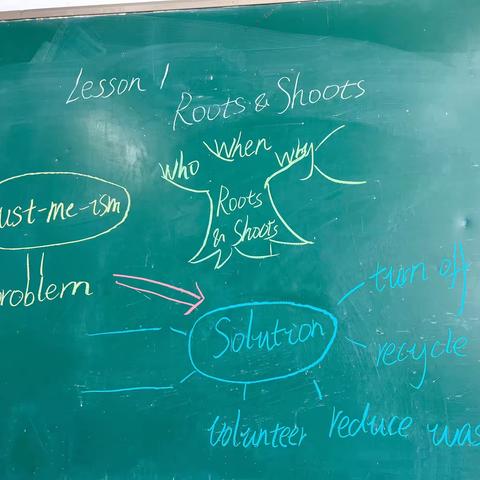 Lesson 1
Roots & Shoots
Who When Why
Roots
& Shoots
ust-me-ism
roblem
Solution
turn off
recycle
Volunteer reduce was